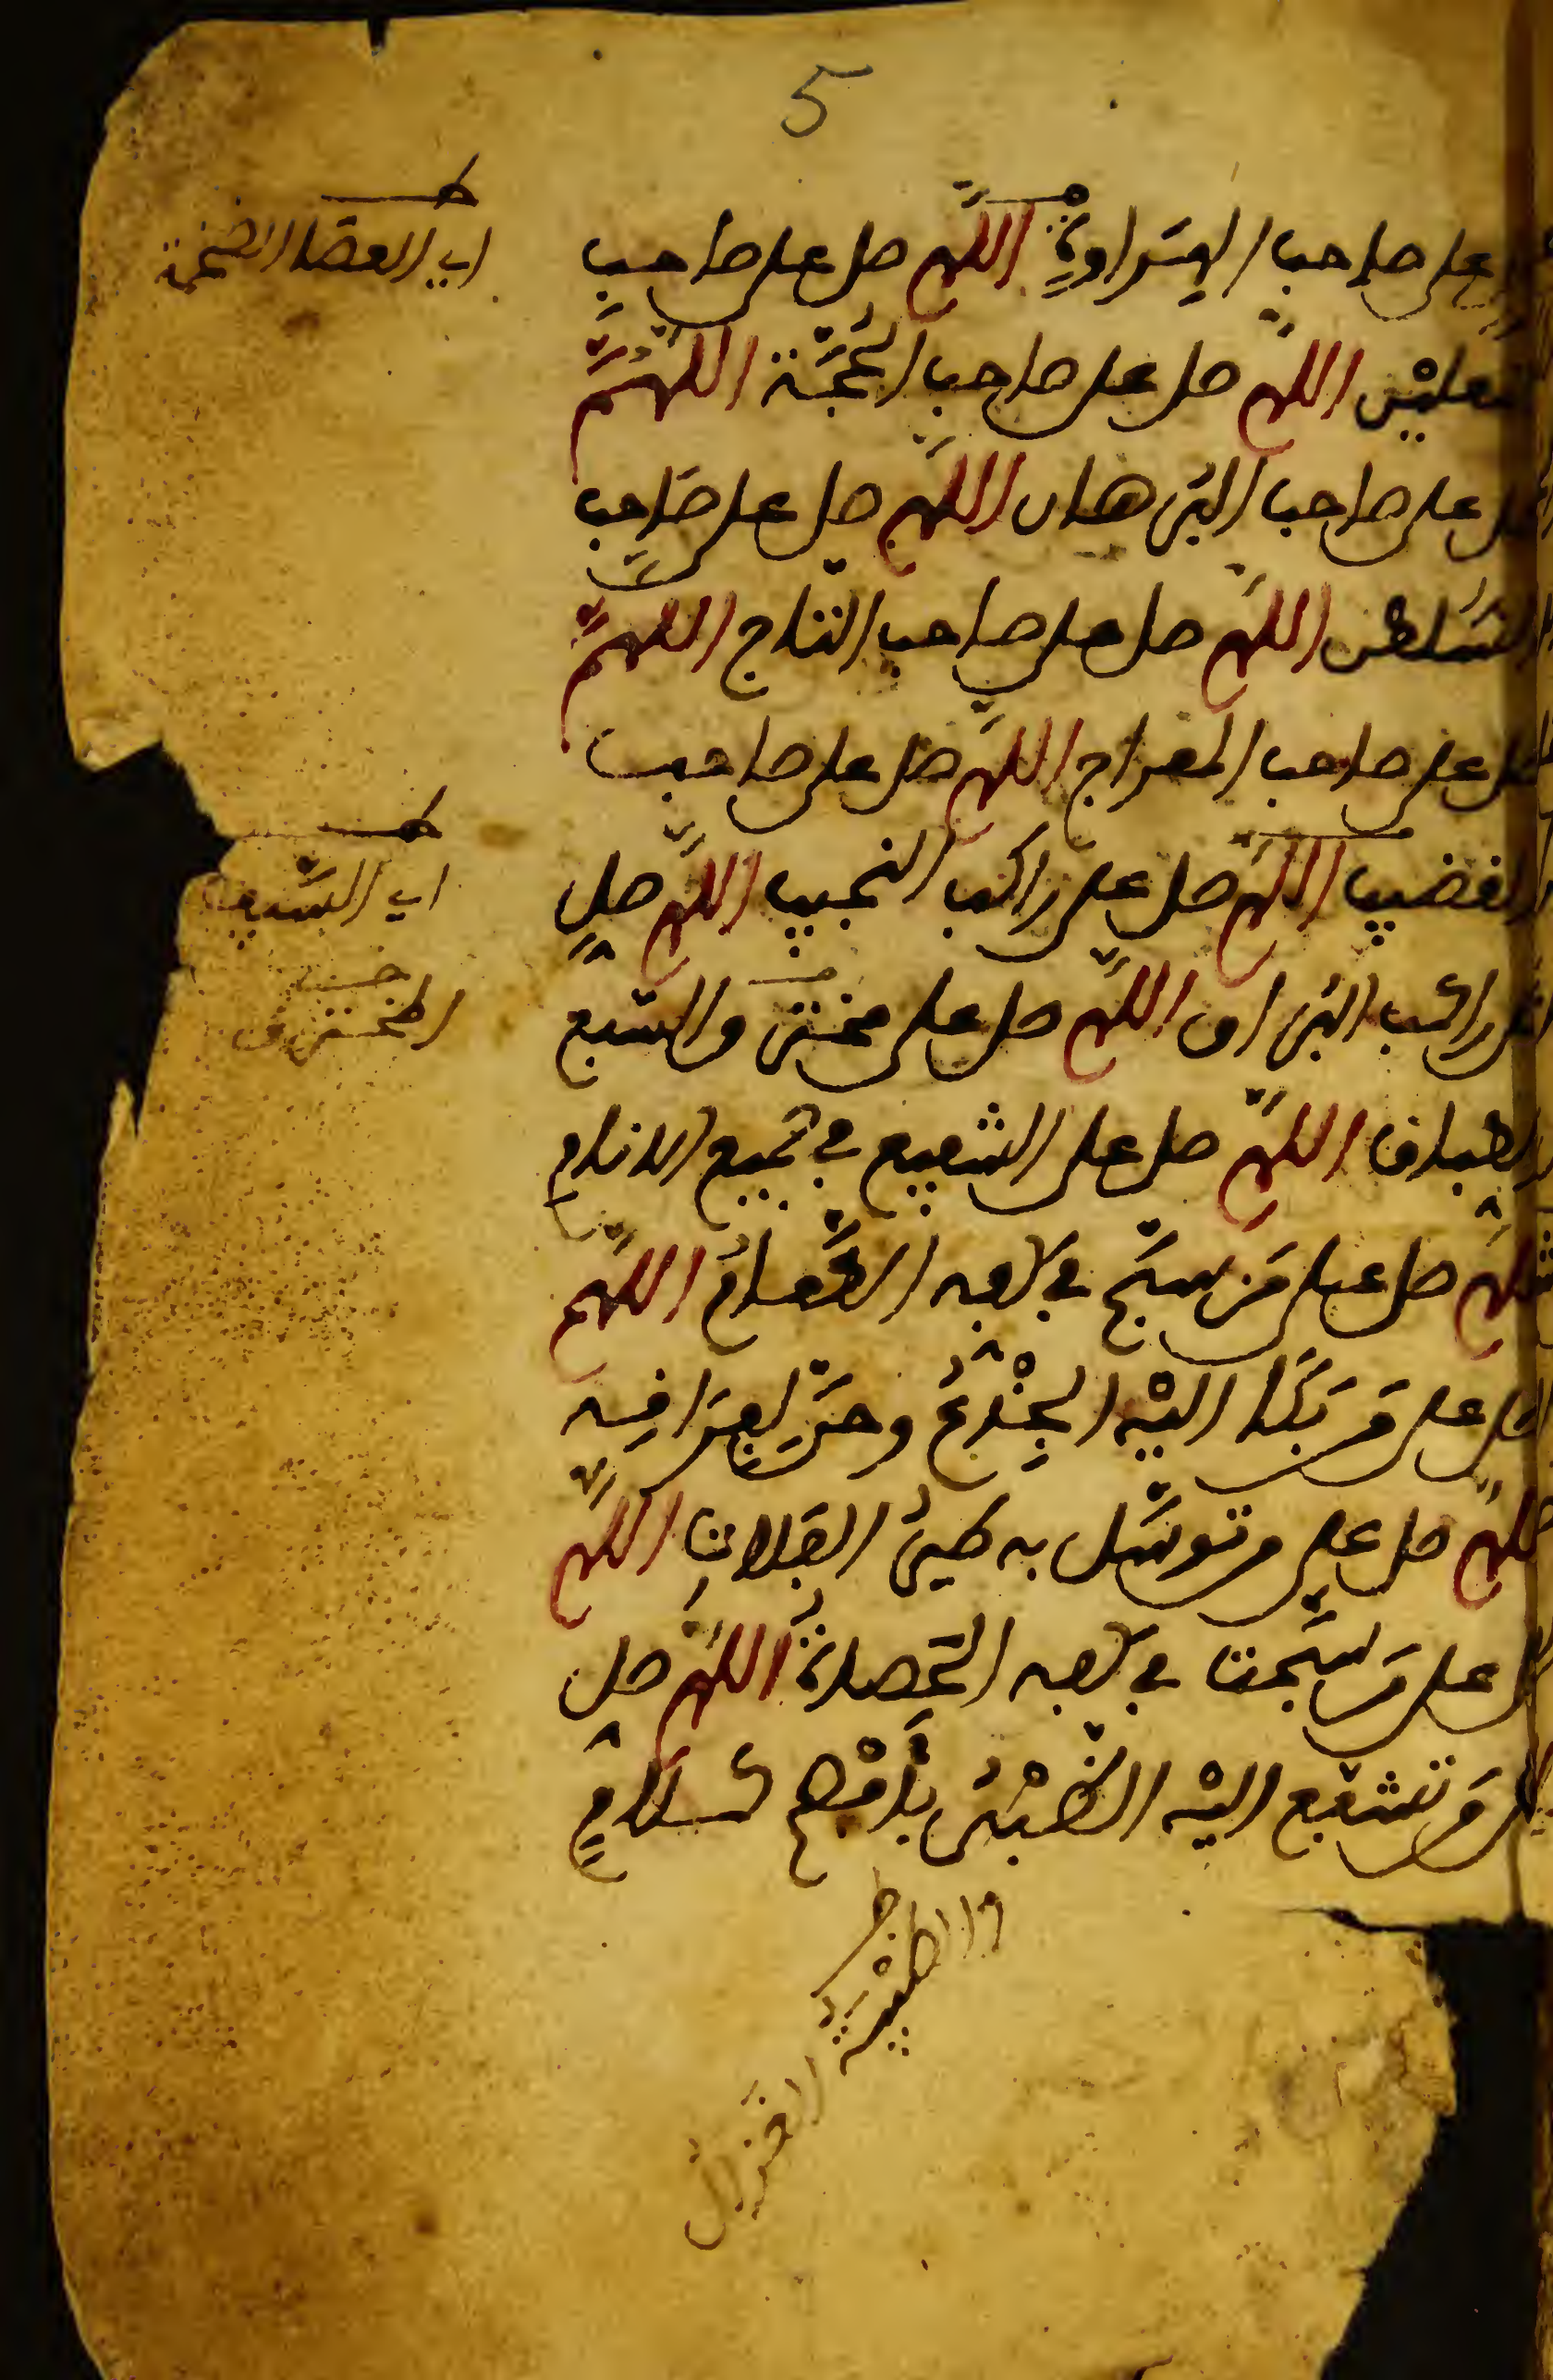 5
على صاحب الهراوة اللهم صل على صاحب
النعلين اللهم صل على صاحب الحجة اللهم
صل على صاحب البرهان اللهم صل على صاحب
السلطن اللهم صل على صاحب التاج اللهم
صل على صاحب المعراج اللهم صل على صاحب
القضيب اللهم صل على راكب النجيب اللهم صل
على راكب البراق اللهم صل على مخترق السبع
الطباق اللهم صل على الشفيع في جميع الانام
اللهم صل على من سبح في كفه الطعام اللهم
صل على من بكا اليه الجذع وحن لفراقه
اللهم صل على من توسل به طير الفلاة اللهم
صل على من سبحت في كفه الحصاة اللهم صل
على من تشفع اليه الظبي بأفصح كلام
اي العصا الضخمة
اي السيف
والظبية
الغزال